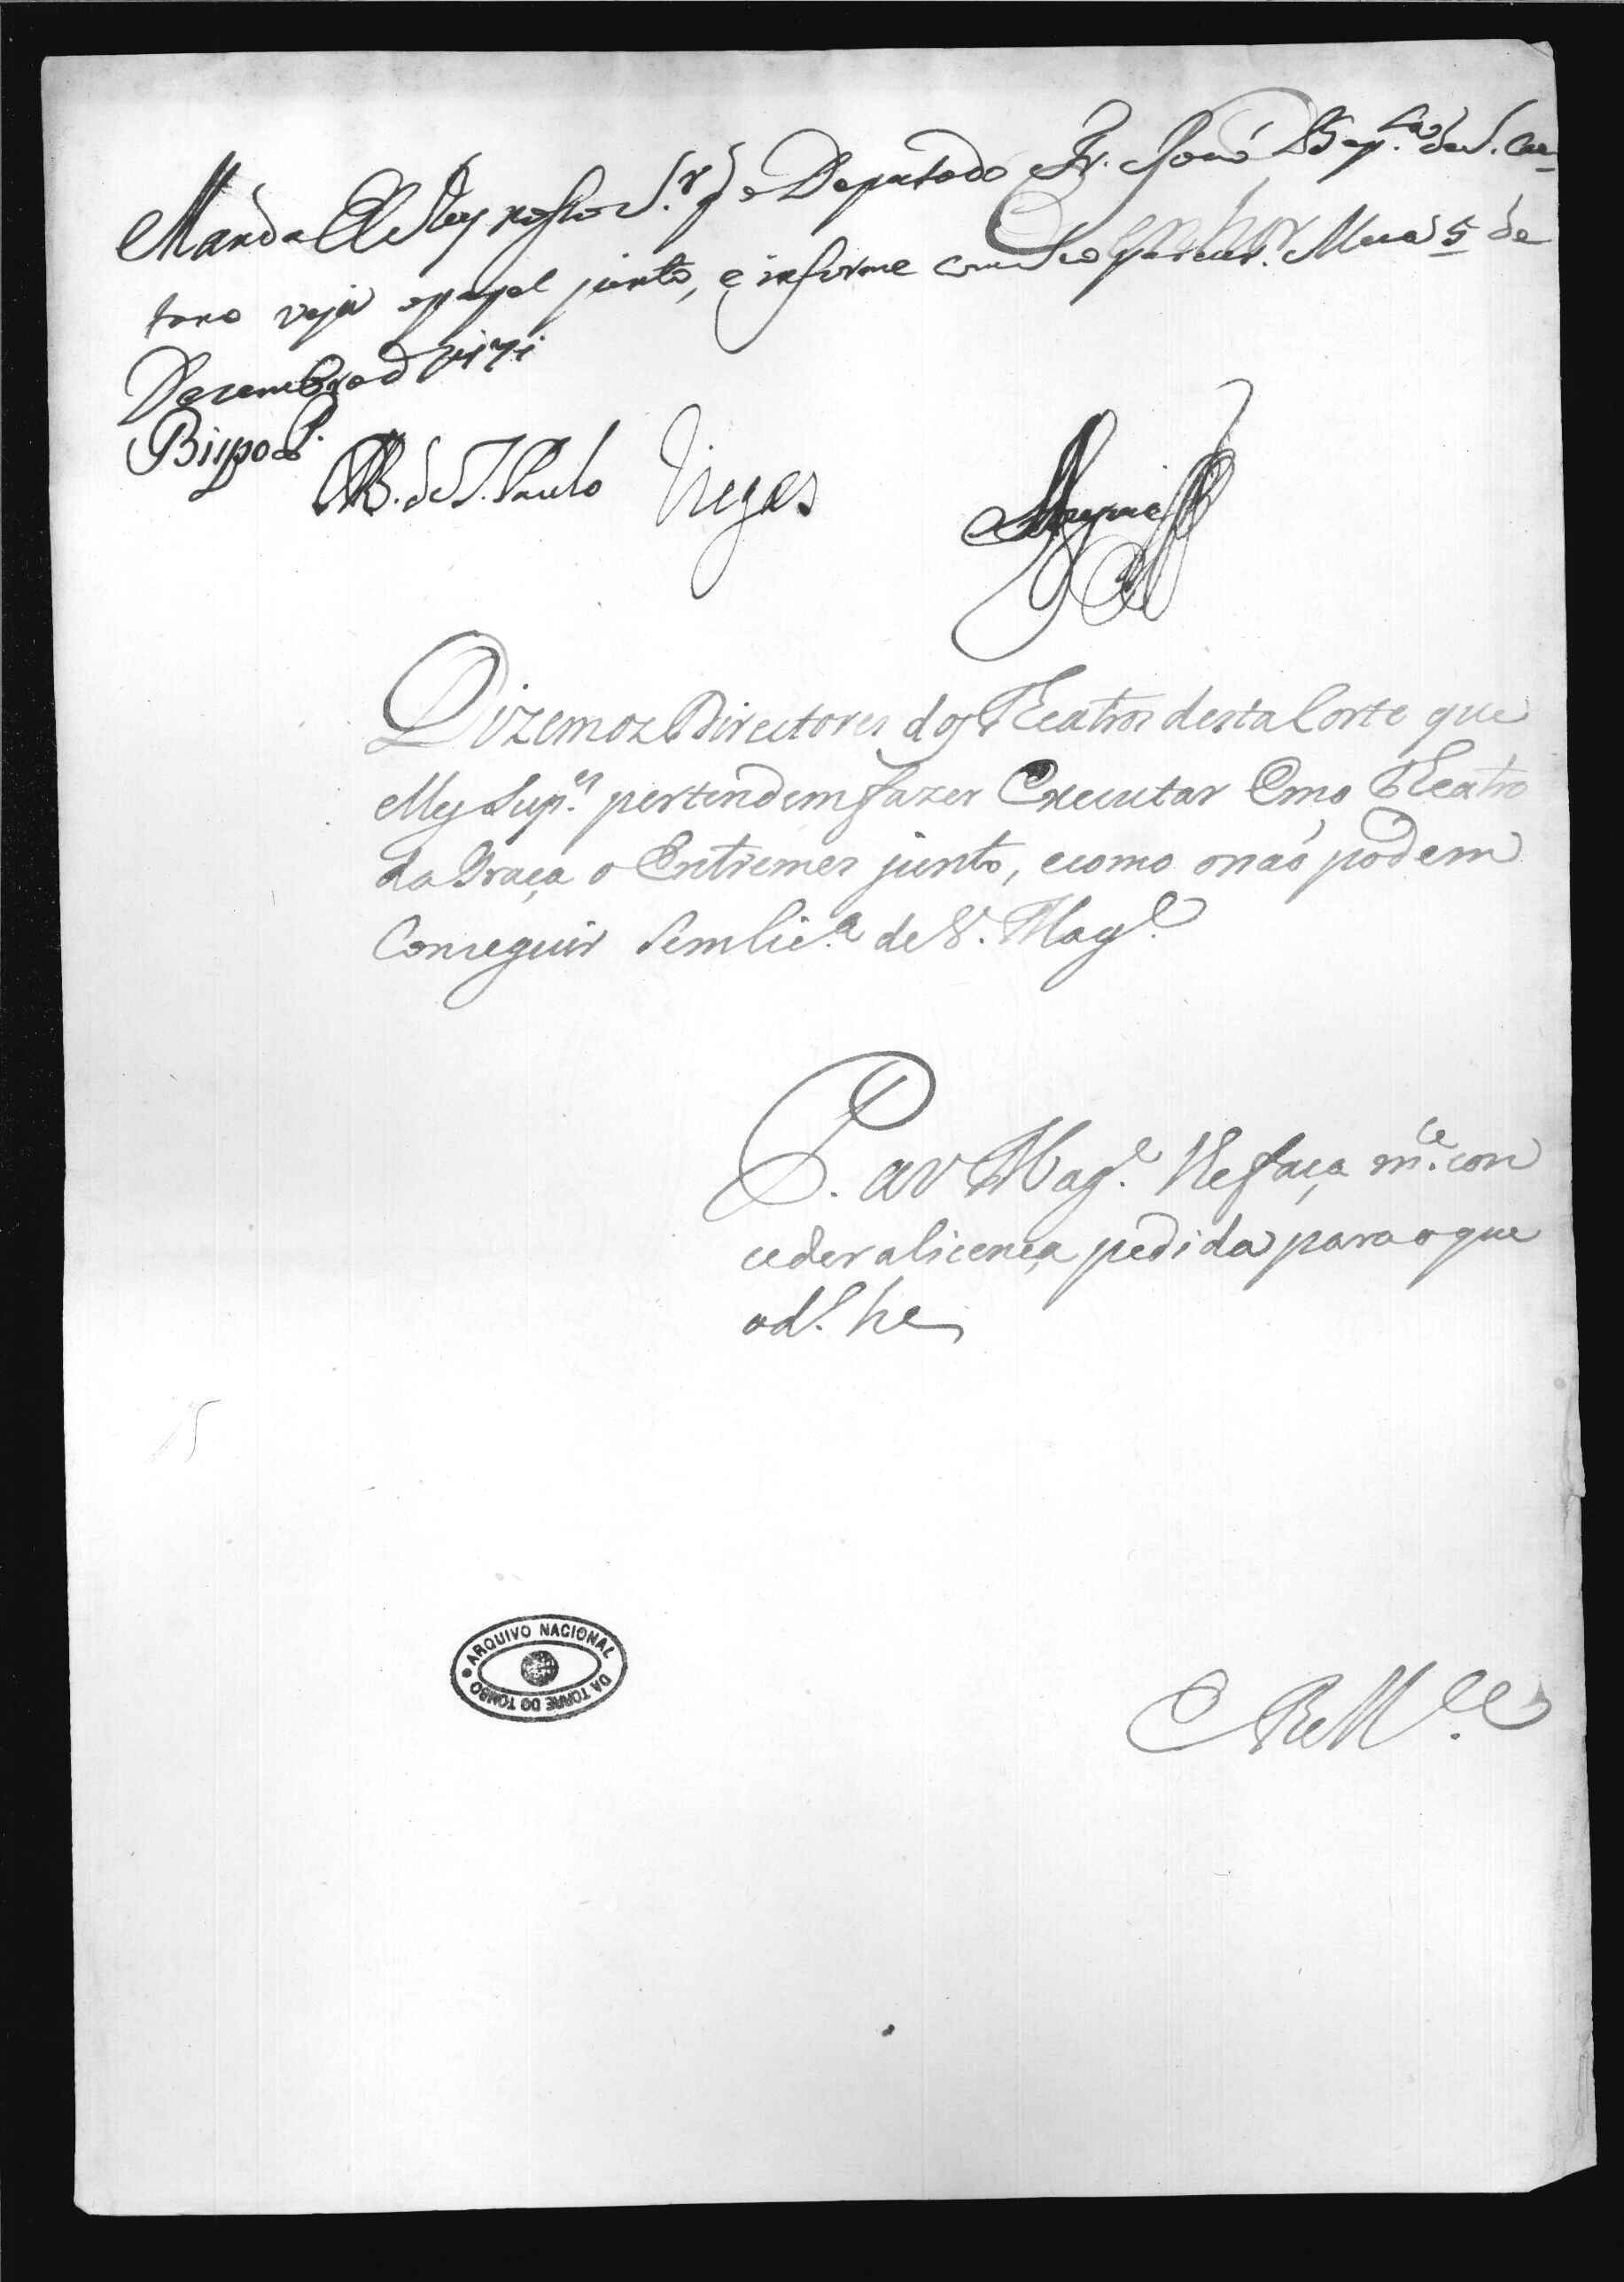 Manda El Rey nosso S.r q̃ o Deputado Fr. Joaõ Bap.ta de S. Cae-
tano veja o papel junto, e informe com seo parecer. Meza 5 de
Senhor
Dezembro d 1771
Bispo P.
B. de S. Paulo Viegas
Dizem oz Directores dos Theatros desta Corte que
elles Sup.es pertendem fazer Executar Em o Theatro
da Graça o Entremez junto, e como o naõ podem
Conseguir Sem lic.a de V. Mag.e
P. a V Mag.e lhe faça m.ce con
ceder a licença pedida para o que
ad.o he
E R M.ce
ARQUIVO NACIONAL
DA TORRE DO TOMBO